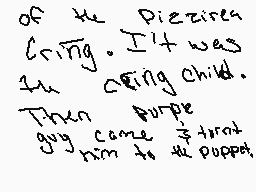 of the Pizzirea
Cring. I't was
the cring child.
Then purpe
guy came & turnt
him to the puppet.